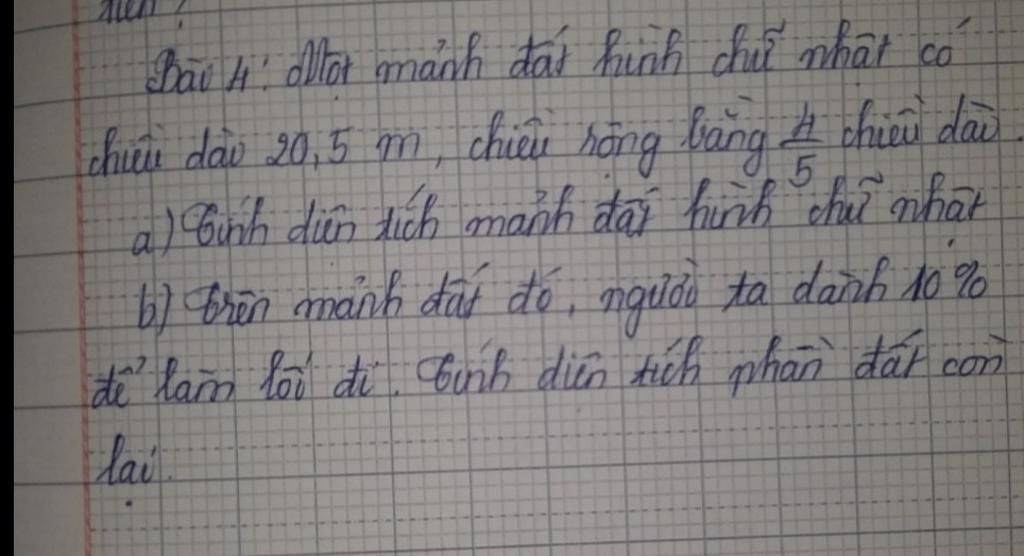 Bài 4: Một mảnh đất hình chữ nhật có
chiều dài 20,5 m, chiều rộng bằng 4/5 chiều dài.
a) Tính diện tích mảnh đất hình chữ nhật
b) Trên mảnh đất đó, người ta dành 10 %
để làm lối đi. Tính diện tích phần đất còn
lại.